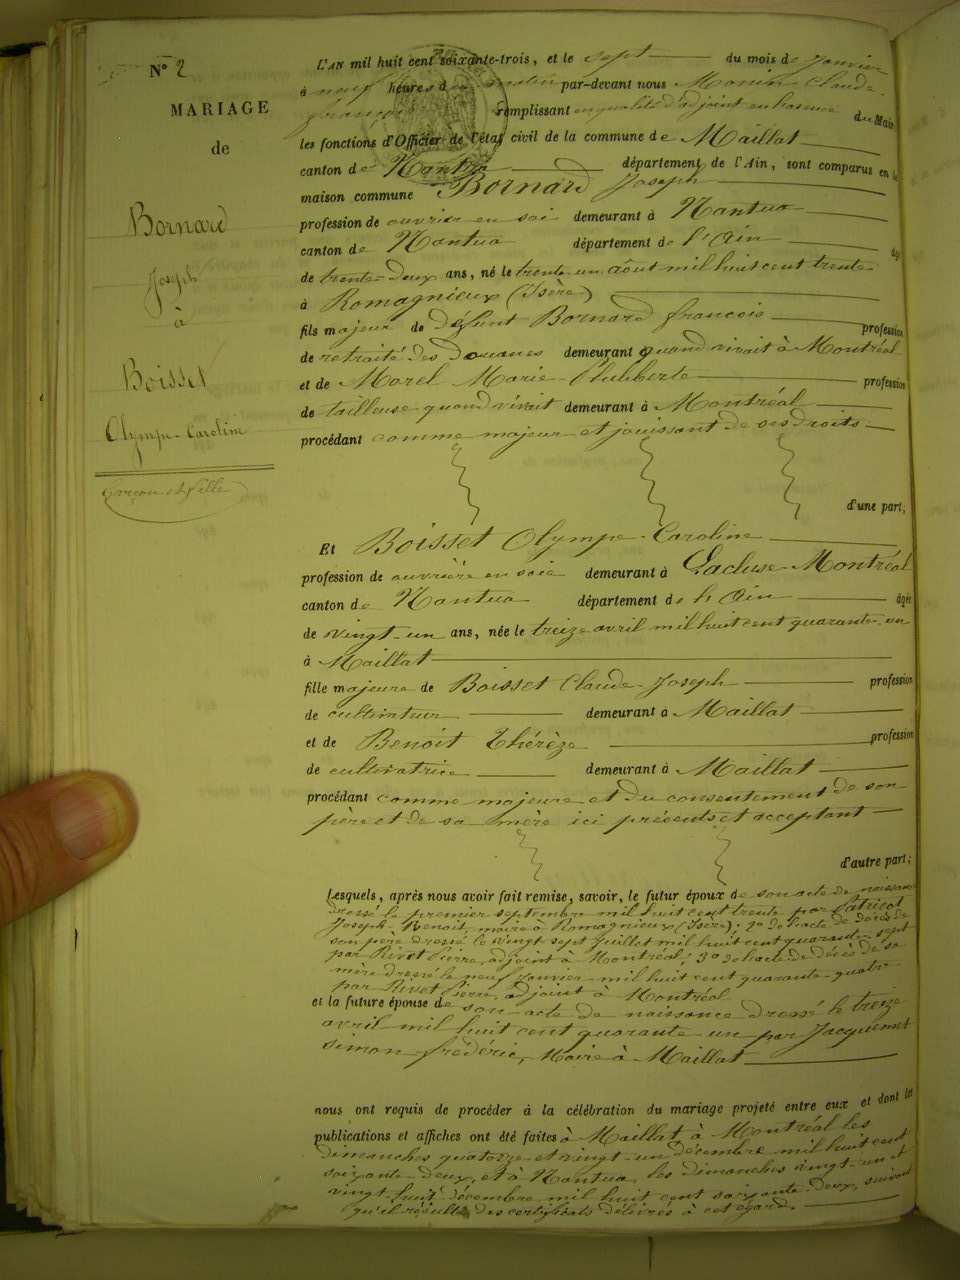 N° 2
MARIAGE
de
Bornard
Joseph
à
Boisset
Olympe-Caroline
Garçon et fille
L'AN mil huit cent soixante-trois, et le sept du mois de Janvier
à neuf heures du matin par-devant nous Monin Claude-
françois remplissant en qualité d'adjoint en l'absence du Maire
les fonctions d'Officier de l'état civil de la commune de Maillat
canton de Nantua département de l'Ain, sont comparus en la
maison commune Bornard Joseph
profession de ouvrier en soie demeurant à Nantua
canton de Nantua département de l'Ain âgé
de trente-deux ans, né le trente-un août mil huit cent trente
à Romagnieux (Isère)
fils majeur de défunt Bornard françois profession
de retraité des Douanes demeurant quand vivait à Montréal
et de Morel Marie-Philiberte profession
de tailleuse quand vivait demeurant à Montréal
procédant comme majeur et jouissant de ses droits
d'une part;
Et Boisset Olympe-Caroline
profession de ouvrière en soie demeurant à Lacluse-Montréal
canton de Nantua département de l'Ain âgée
de vingt-un ans, née le treize avril mil huit cent quarante-un
à Maillat
fille majeure de Boisset Claude-Joseph profession
de cultivateur demeurant à Maillat
et de Benoit Thérèze profession
de cultivatrice demeurant à Maillat
procédant comme majeure et du consentement de son
père et de sa mère ici présents et acceptant
d'autre part;
Lesquels, après nous avoir fait remise, savoir, le futur époux de son acte de naissance
dressé le premier septembre mil huit cent trente par Patricot
Joseph-Benoit, maire à Romagnieux (Isère); 2° de l'acte de décès de
son père dressé le vingt sept Juillet mil huit cent quarante-sept
par Rivet Pierre, adjoint à Montréal; 3° de l'acte de décès de sa
mère dressé le neuf Janvier mil huit cent quarante-quatre
par Rivet Pierre, adjoint à Montréal
et la future épouse de son acte de naissance dressé le treize
avril mil huit cent quarante-un par Jacquemet
Simon-frédéric, Maire à Maillat
nous ont requis de procéder à la célébration du mariage projeté entre eux et dont les
publications et affiches ont été faites à Maillat à Montréal les
dimanches quatorze et vingt-un décembre mil huit cent
soixante-deux, et à Nantua, les dimanches vingt-un et
vingt-huit décembre mil huit cent soixante-deux, suivant
qu'il résulte des certificats délivrés à cet égard.